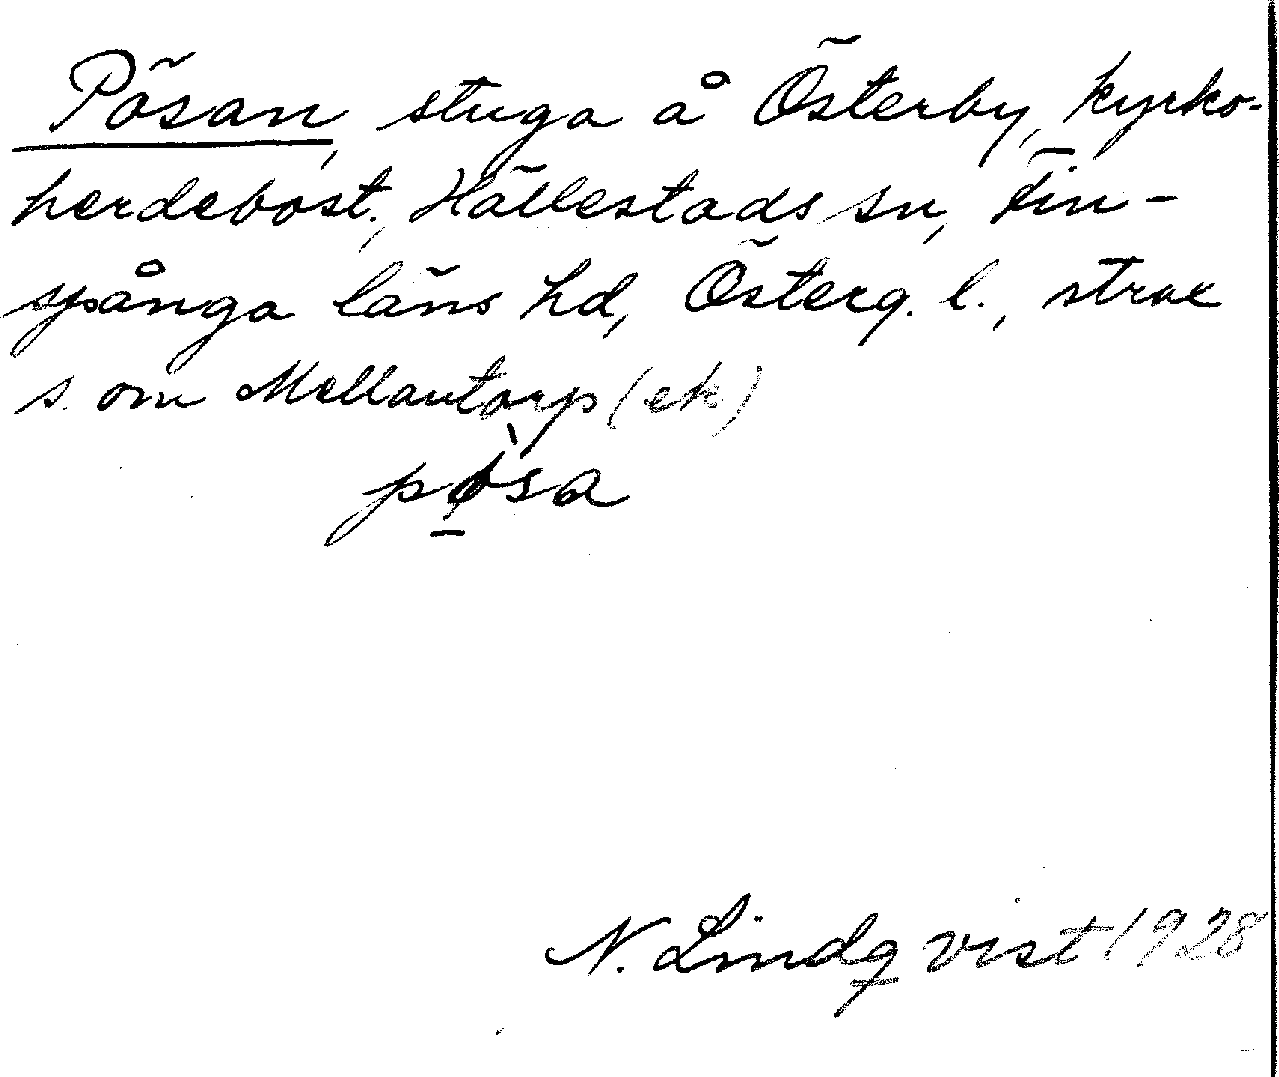 Pösan, stuga å Österby, kyrko-
herdebost., Hällestads sn, Fin-
spånga läns hd, Österg. l., strax
s. om Mellantorp (ek)
pø̱̀sa
N. Lindqvist 1928